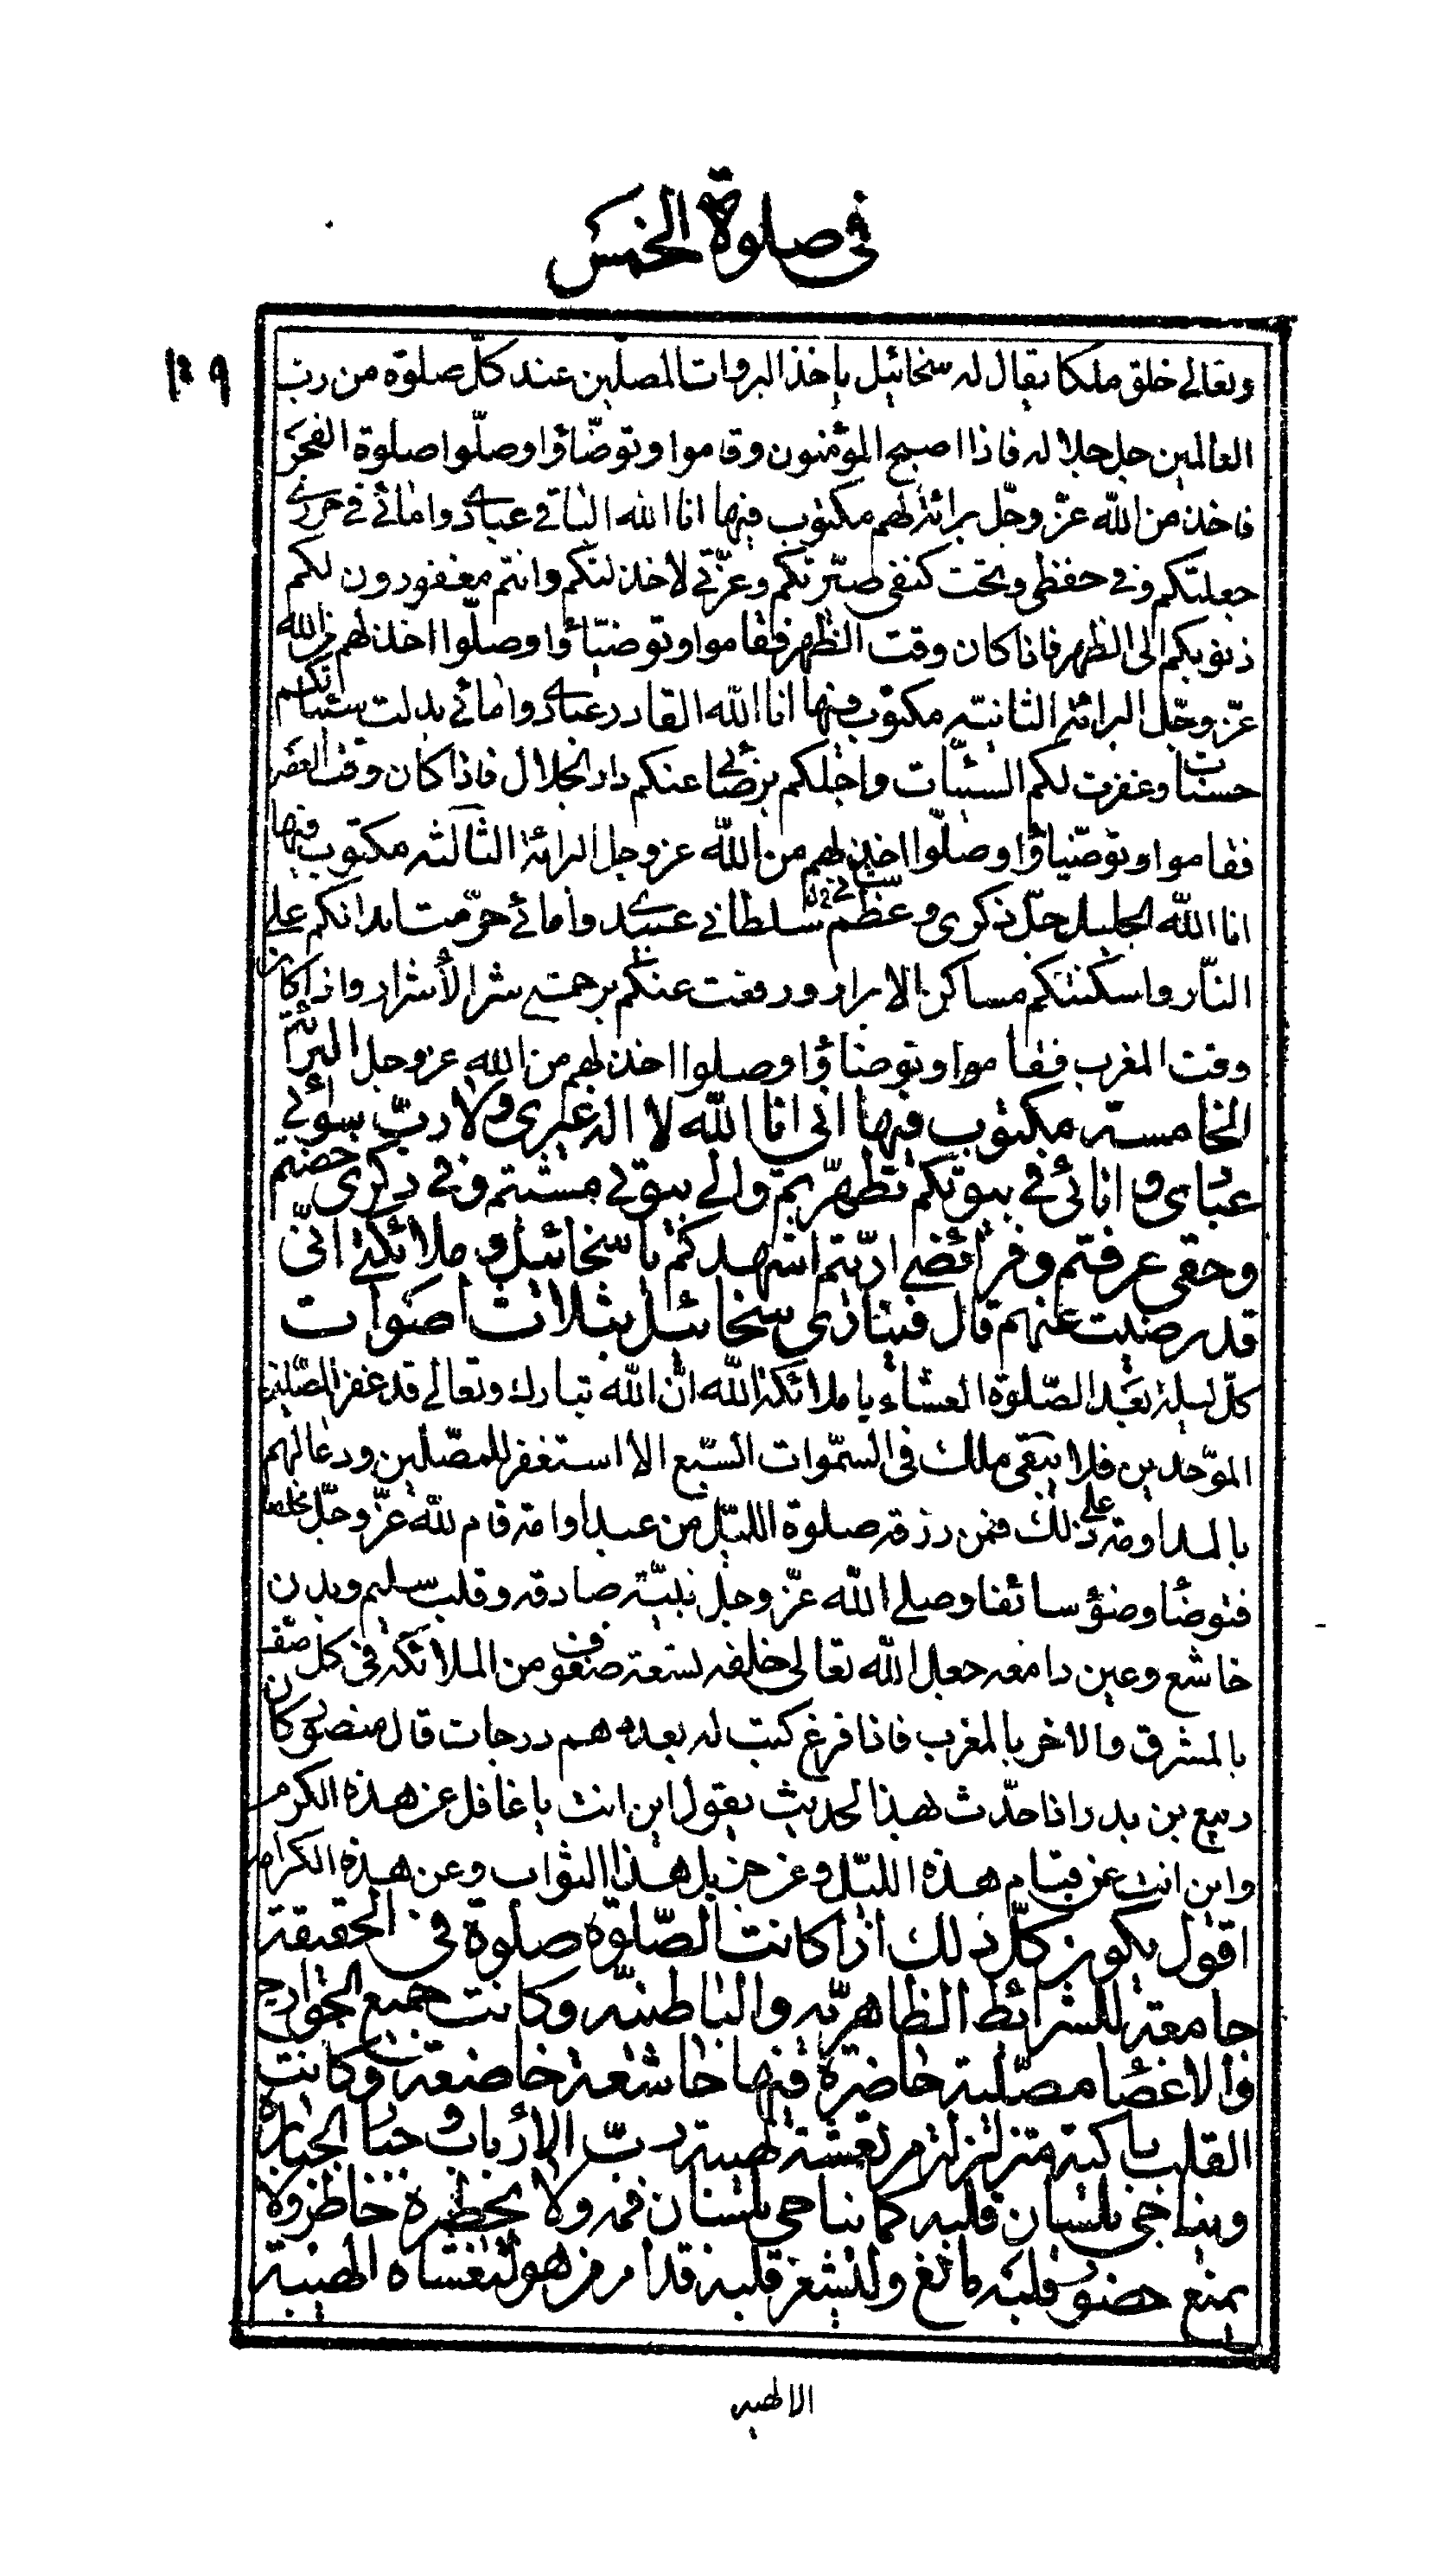 فى صلوة الخمس
١٠٩
وتعالى خلق ملكا يقال له سخائيل ياخذ البروات للمصلّين عند كلّ صلوة من ربّ
العالمين جل جلاله فاذا اصبح المؤمنون وقاموا وتوضّاؤا وصلّوا صلوة الفجر
فاخذ من اللّه عزّ وجلّ برائة لهم مكتوب فيها انا اللّه الباقى عبادى وامائى فى حرزى
جعلتكم وفى حفظى وتحت كنفى صيّرتكم وعزّتى لاخذلتكم وانتم مغفورون لكم
ذنوبكم الى الظهر فاذا كان وقت الظهر فقاموا وتوضّاؤا وصلّوا اخذ لهم من اللّه
عزّ وجّل البرائة الثانية مكتوب فيها انا اللّه القادر عبادى وامائى بدلت سيّئاتكم
حسنات وغفرت لكم السيّئات واحللكم برضائى عنكم دار الجلال فاذا كان وقت العصر
فقاموا وتوضّياؤا وصلّوا اخذ لهم من اللّه عز وجل البرائة الثالثه مكتوب فيها
انا اللّه الجليل جلّ ذكرى وعظم سلطانى عبيدى وامائى حرّمت ابدانكم على
النّار واسكنتكم مساكن الابرار ورفعت عنكم برحمتى شر الأشرار واذا كان
وقت المغرب فقاموا وتوضاؤا وصلوا اخذ لهم من اللّه عز وجل البرائة
الخامسة مكتوب فيها انى انا اللّه لا اله غيرى ولا ربّ سوائى
عبادى وامائى فى بيوتكم تطهّرتم والى بيوتى مشيتم وفى ذكرى خضتم
وحقى عرفتم وفرائضى ادّيتم اشهدكم يا سخائيل وملائكتى انّى
قد رضيت عنهم قال فينادى سخائيل بثلاث اصوات
كلّ ليلة بعد الصّلوة العشاء يا ملائكة اللّه انّ اللّه تبارك وتعالى قد غفر للمصّلين
الموّحدين فلا يبقى ملك فى السمّوات السّبع الا استغفر للمصّلين ودعا لهم
بالمداومة على ذلك فمن رزق صلوة الليّل من عبد او امة قام للّه عزّ وجّل مخلصا
فتوضّا وضؤ سائغا وصلى اللّه عزّ وجل بنيّة صادقه وقلب سليم وبدن
خاشع وعين دامعه جعل اللّه تعالى خلفه تسعة صفوف من الملائكة فى كل صف
بالمشرق والاخر بالمغرب فاذا فرغ كتب له بعددهم درجات قال منصور كان
ربيع بن بدر اذا حدّث بهذا الحديث يقول اين انت يا غافل عن هذه الكرم
واين انت عن قيام هذه الليّل وعن جزيل هذا الثواب وعن هذه الكرامة
اقول يكون كلّ ذلك اذا كانت الصّلوة صلوة فى الحقيقة
جامعة للشرائط الظاهريّه والباطنيّه وكانت جميع الجوارح
والاعضا مصّلية حاضرة فيها خاشعة خاضعة وكانت
القلب باكية متزلزلة مرتعشة لهيبة ربّ الأرباب وجبّار الجبابرة
ويناجى بلسان قلبه كما يناجى بلسان فمه ولا يخطره خاطر ولا
يمنع حضور قلبه مانع وليشعر قلبه قدام من هو ليغشاه الهيبة
الالهيه